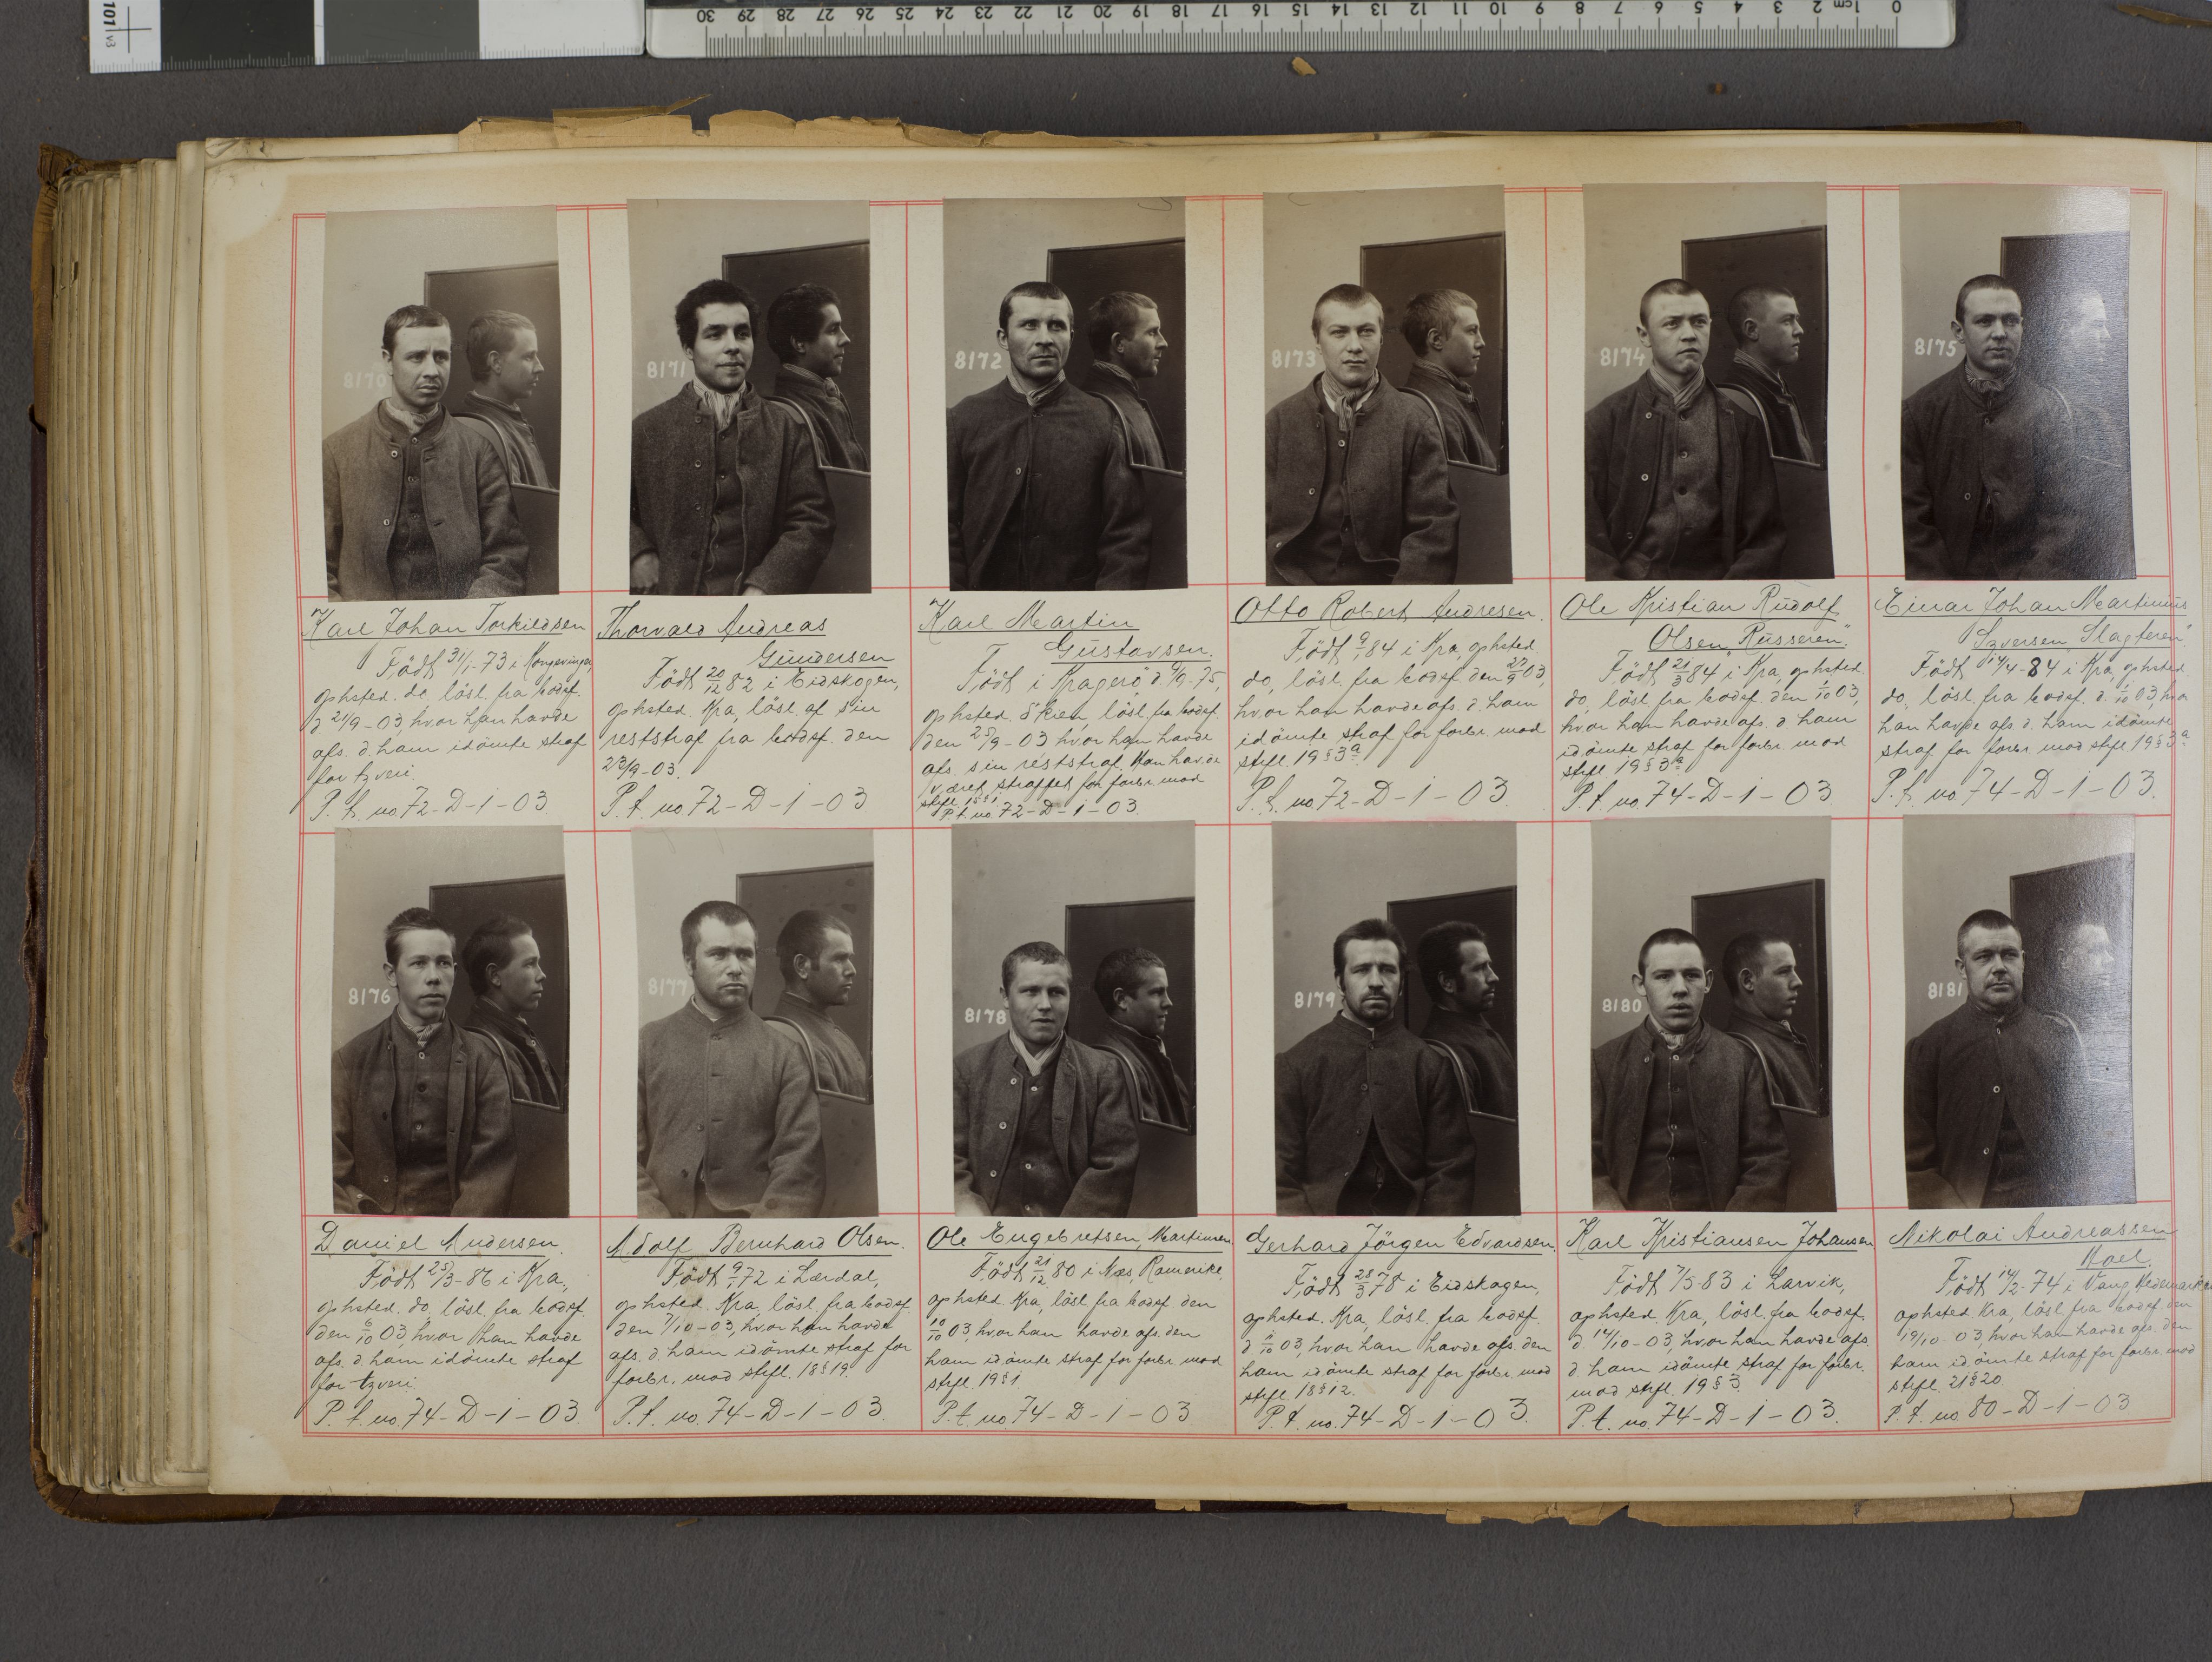 101 v3
30 29 28 27 26 25 24 23 22 21 20 19 18 17 16 15 14 13 12 11 10 9 8 7 6 5 4 3 2 1cm 0
8170
8171
8172
8173
8174
8175
Karl Johan Torkildsen
Född 31/1-73 i Kongsvinger,
ophsted. do, lösl. fra bodsf.
d 21/9-03, hvor han havde
afs. d. ham idömte straf
for tyveri.
P. f. no. 72-D-1-03
Thorvald Andreas
Gundersen
Född 20/12 82 i Eidskogen,
ophsted. Kra, lösl. af sin
reststraf fra bodsf. den
23/9-03.
P. f. no. 72-D-1-03
Karl Martin
Gustavsen.
Född i Kragerö, d. 9/9-75,
ophsted. Skien, lösl. fra bodsf.
den 25/9-03 hvor han havde
afs. sin reststraf. Han havde
været straffet for forbr. mod
stfl.
P. f. no. 72-D-1-03.
Otto Robert Andresen.
Född 9/1 84 i Kra, ophsted.
do, lösl. fra bodsf. den 27/9 03,
hvor han havde afs. d. ham
idömte straf for forbr. mod
stfl. 19 § 3a
P. f. no. 72-D-1-03.
Ole Kristian Rudolf
Olsen "Russeren".
Född 21/3 84 i Kra, ophsted.
do, lösl. fra bodsf. den 1/10 03,
hvor han havde afs. d ham
idömte straf for forbr. mod
stfl. 19 § 3a
P. f. no. 74-D-1-03
Einar Johan Martinius
Syversen "Slagteren".
Född 14/4-84 i Kra, ophsted.
do, lösl. fra bodsf. d. 1/10 03, hvor
han havde afs d. ham idömte
straf for forbr mod stfl. 19 § 3a
P. f. no. 74-D-1-03.
8176
8177
8178
8179
8180
8181
Daniel Andersen.
Född 25/3-86 i Kra,
ophsted. do, lösl. fra bodsf.
den 6/10 03, hvor han havde
afs. d. ham idömte straf
for tyveri.
P. f. no. 74-D-1-03.
Adolf Bernhard Olsen.
Född 9/1 72 i Lærdal,
ophsted. Kra, lösl. fra bodsf.
den 7/10-03, hvor han havde
afs. d. ham idömte straf for
forbr. mod stfl. 18 § 19.
P. f. no. 74-D-1-03.
Ole Engebretsen Martinsen
Född 21/12 80 i Næs, Romerike,
ophsted. Kra, lösl. fra bodsf. den
10/10 03, hvor han havde afs. den
ham idömte straf for forbr. mod
stfl. 19 § 1
P. f. no 74-D-1-03
Gerhard Jörgen Edvardsen.
Född 28/3 78 i Eidskogen,
ophsted. Kra, lösl. fra bodsf.
d 03, hvor han havde afs. den
ham idömte straf for forbr. mod
stfl. 18 § 12.
P. f. no. 74-D-1-03.
Karl Kristiansen Johansen
Född 7/5-83 i Larvik,
ophsted. Kra, lösl. fra bodsf.
d. 14/10-03, hvor han havde afs.
d. ham idömte straf for forbr.
mod stfl. 19 § 3.
P. f. no. 74-D-1-03.
Nikolai Andreassen
Hoel.
Född 14/2-74 i Vang, Hedemarken
ophsted Kra, lösl. fra bodsf. den
19/10-03, hvor han havde afs. den
ham idömte straf for forbr. mod
stfl. 21 § 20.
P. f. no. 80-D-1-03